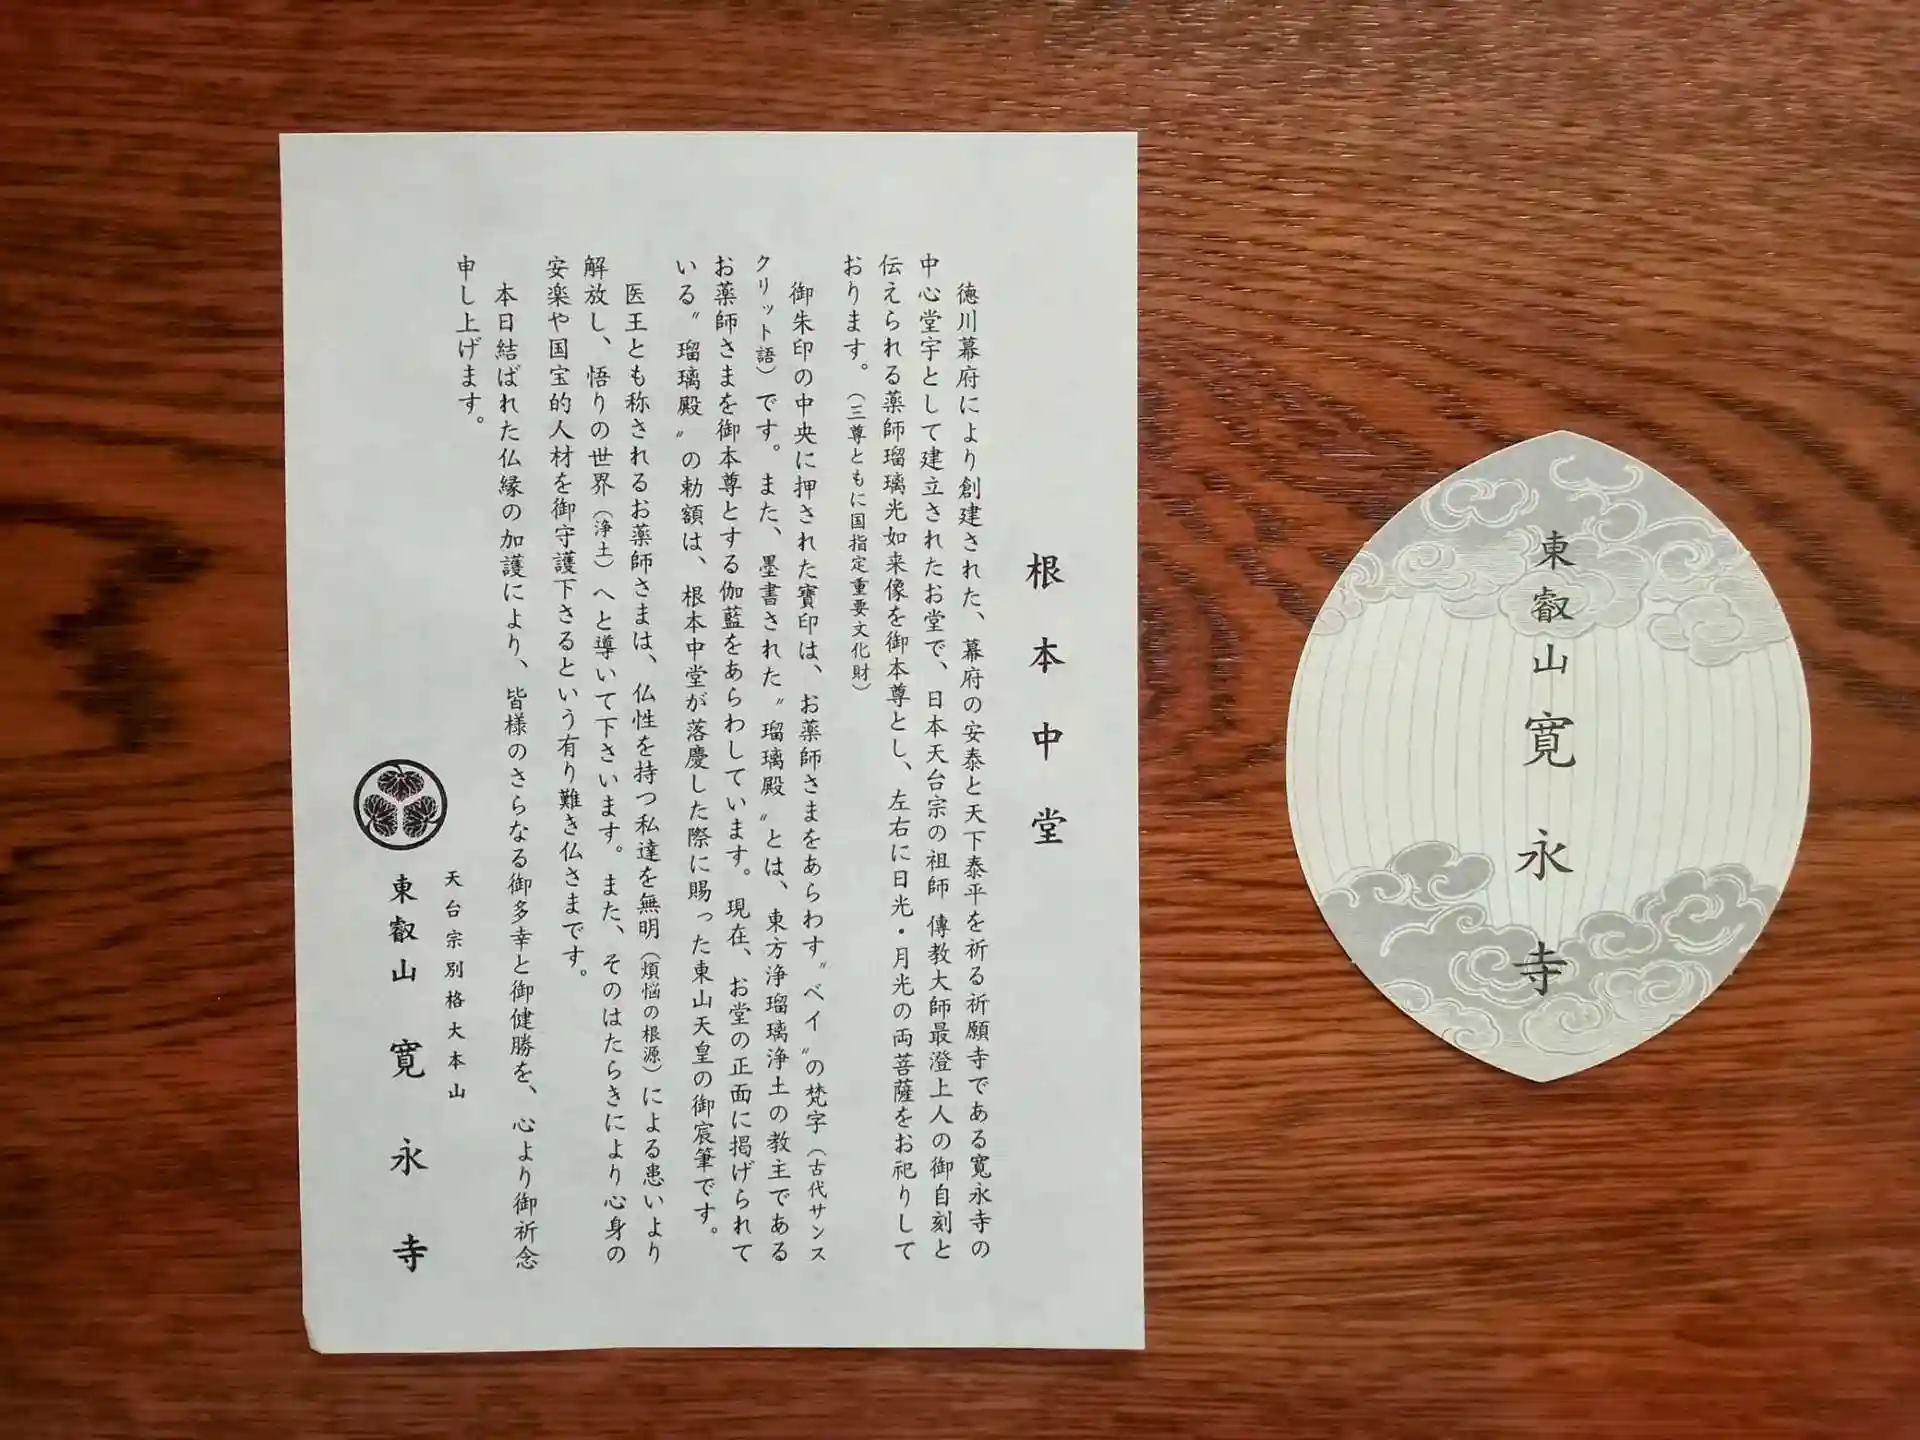 根本中堂
徳川幕府により創建された、幕府の安泰と天下泰平を祈る祈願寺である寛永寺の
中心堂宇として建立されたお堂で、日本天台宗の祖師 傳教大師最澄上人の御自刻と
伝えられる薬師瑠璃光如来像を御本尊とし、左右に日光・月光の両菩薩をお祀りして
おります。（三尊ともに国指定重要文化財）
御朱印の中央に押された寶印は、お薬師さまをあらわす〝ベイ〟の梵字（古代サンス
クリット語）です。また、墨書された〝瑠璃殿〟とは、東方浄瑠璃浄土の教主である
お薬師さまを御本尊とする伽藍をあらわしています。現在、お堂の正面に掲げられて
いる〝瑠璃殿〟の勅額は、根本中堂が落慶した際に賜った東山天皇の御宸筆です。
医王とも称されるお薬師さまは、仏性を持つ私達を無明（煩悩の根源）による患いより
解放し、悟りの世界（浄土）へと導いて下さいます。また、そのはたらきにより心身の
安楽や国宝的人材を御守護下さるという有り難き仏さまです。
本日結ばれた仏縁の加護により、皆様のさらなる御多幸と御健勝を、心より御祈念
申し上げます。
天台宗別格大本山
東叡山 寛永寺
東叡山寛永寺